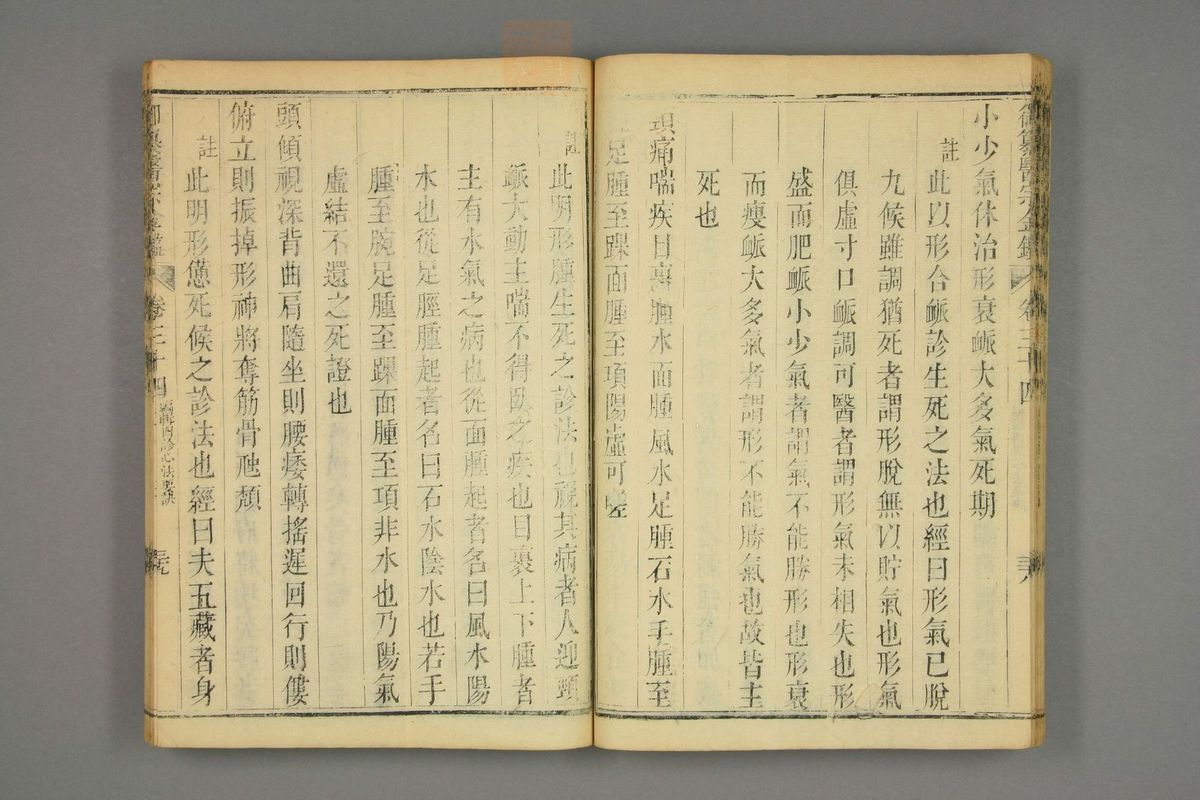 御纂醫宗金鑑 卷三十四 三八
小少氣休治形衰脈大多氣死期
註
此以形合脈診生死之法也經曰形氣已脫
九候雖調猶死者謂形脫無以貯氣也形氣
俱虛寸口脈調可醫者謂形氣未相失也形
盛而肥脈小少氣者謂氣不能勝形也形衰
而瘦脈大多氣者謂形不能勝氣也故皆主
死也
頸痛喘疾目裹腫水面腫風水足腫石水手腫至
足腫至踝面腫至項陽虛可嗟
註
此明形腫生死之診法也視其病者人迎頸
脈大動主喘不得臥之疾也目裹上下腫者
主有水氣之病也從面腫起者名曰風水陽
水也從足脛腫起者名曰石水陰水也若手
腫至腕足腫至踝面腫至項非水也乃陽氣
虛結不還之死證也
頭傾視深背曲肩隨坐則腰痿轉搖遲回行則僂
俯立則振掉形神將奪筋骨虺頹
註
此明形憊死候之診法也經曰夫五藏者身
御纂醫宗金鑑 卷三十四 編輯四診心法要訣 三九